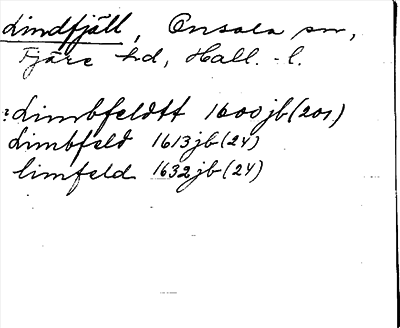 Lindfjäll, Onsala sn,
Fjäre hd, Hall. l.
?Limbfeldtt 1600 jb (201)
Limbfeld 1613 jb (24)
limfeld 1632 jb (24)